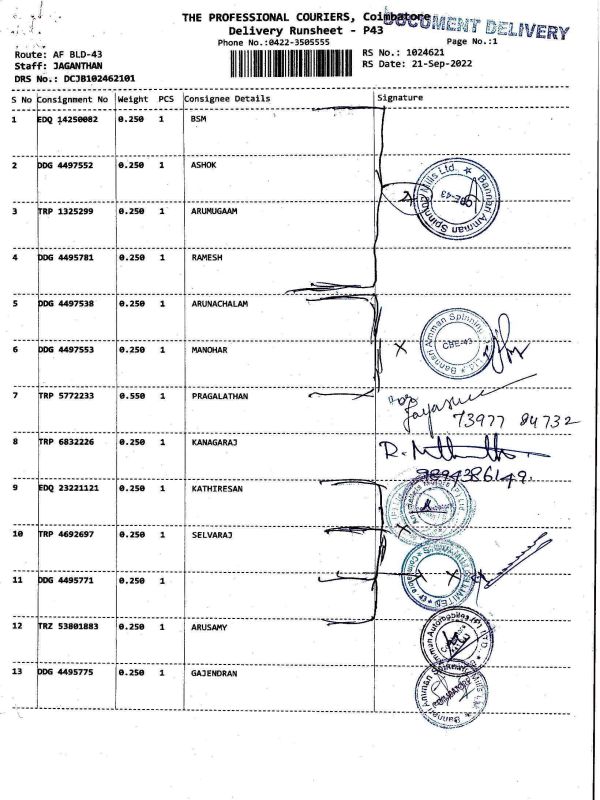 THE PROFESSIONAL COURIERS, Coimbatore
DOCUMENT DELIVERY
Delivery Runsheet - P43
Phone No.:0422-3505555
Page No.:1
Route: AF BLD-43
RS No.: 1024621
Staff: JAGANTHAN
RS Date: 21-Sep-2022
DRS No.: DCJB102462101
S No Consignment No Weight PCS Consignee Details Signature
1 EDQ 14250082 0.250 1 BSM
2 DDG 4497552 0.250 1 ASHOK
Bannari Amman Spinning Mills Ltd., CBE-43
3 TRP 1325299 0.250 1 ARUMUGAAM
4 DDG 4495781 0.250 1 RAMESH
5 DDG 4497538 0.250 1 ARUNACHALAM
Bannari Amman Spinning Ltd CBE-43
6 DDG 4497553 0.250 1 MANOHAR
7 TRP 5772233 0.550 1 PRAGALATHAN
73977 84732
8 TRP 6832226 0.250 1 KANAGARAJ
9894386149.
9 EDQ 23221121 0.250 1 KATHIRESAN
10 TRP 4692697 0.250 1 SELVARAJ
11 DDG 4495771 0.250 1
12 TRZ 53801883 0.250 1 ARUSAMY
13 DDG 4495775 0.250 1 GAJENDRAN